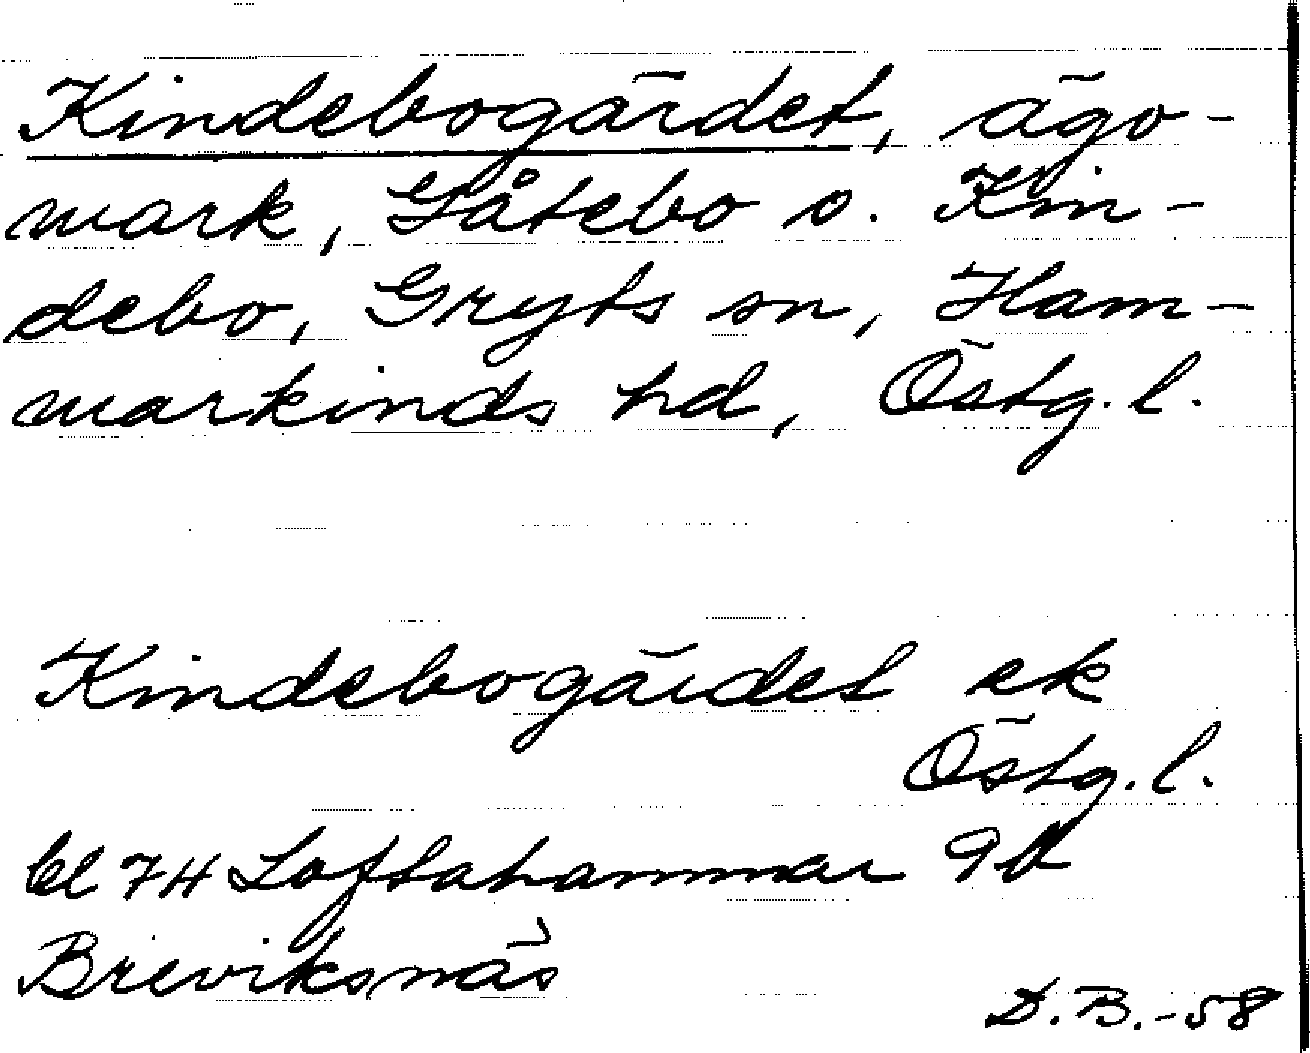 Kindebogärdet, ägo-
mark, Gåtebo o. Kin-
debo, Gryts sn, Ham-
markinds hd, Östg. l.
Kindebogärdet ek
Östg. l.
bl 7H Loftahammar 9b
Breviksnäs
D.B.-58